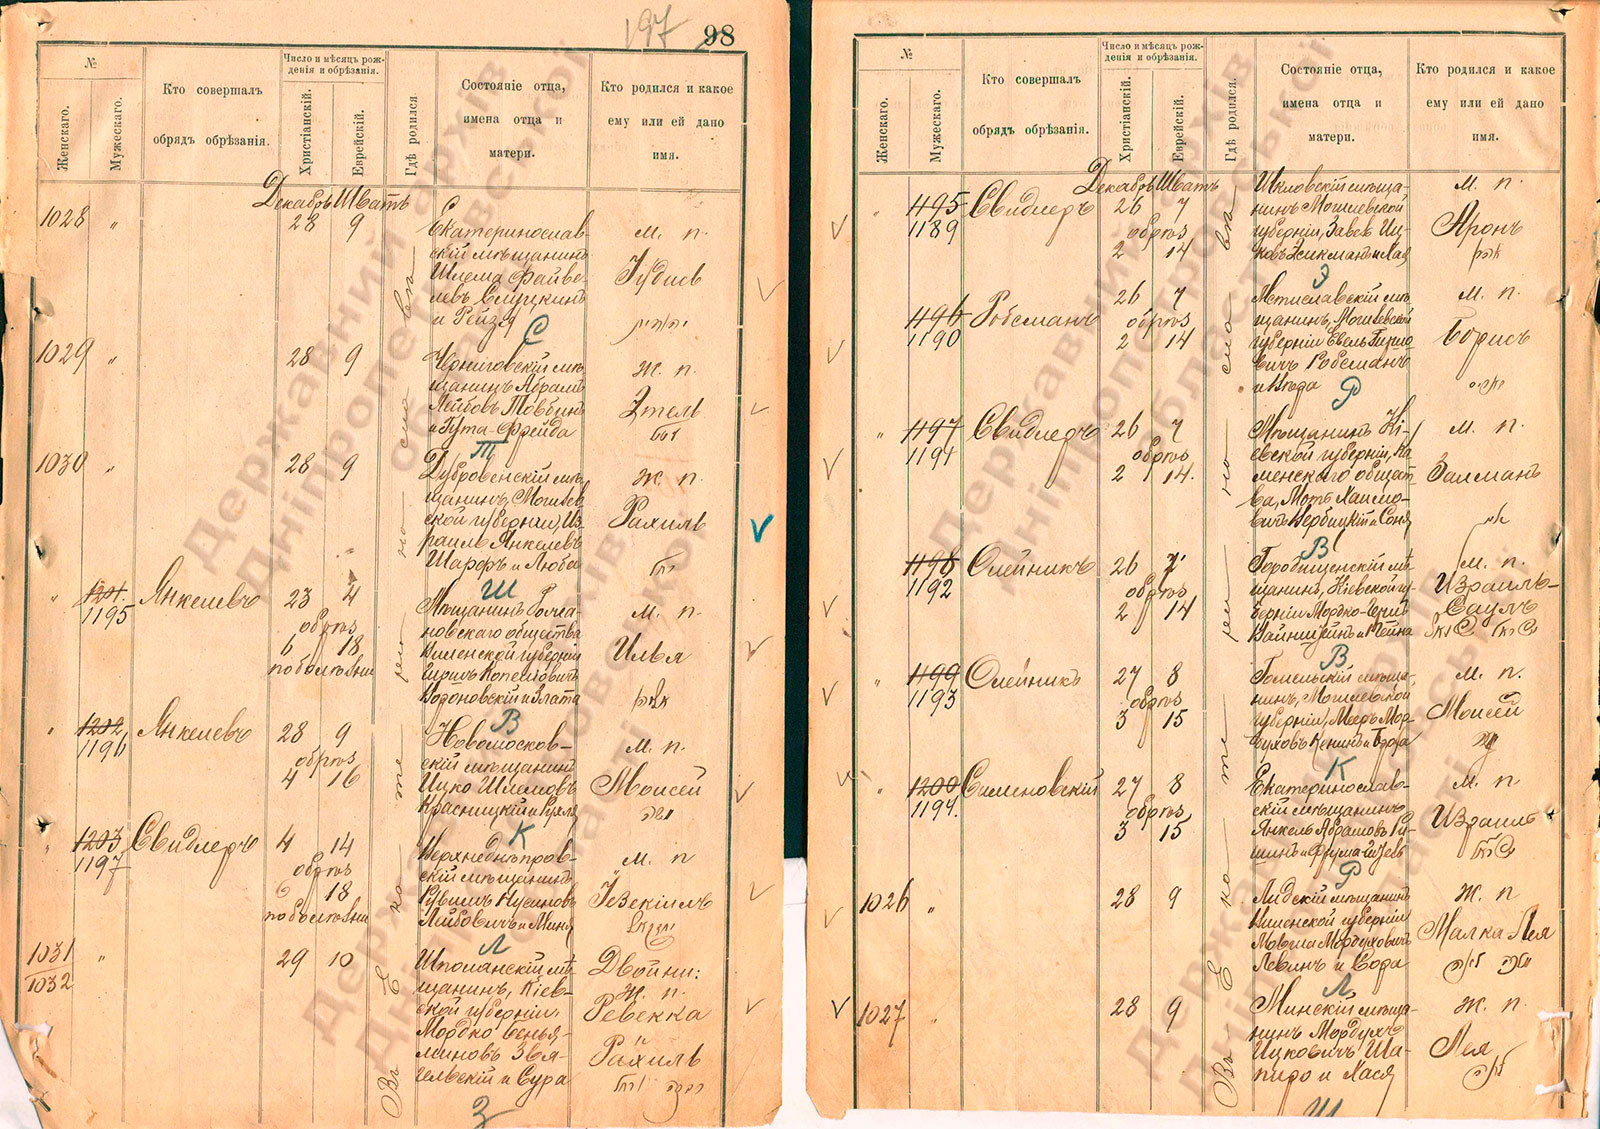 197
98
№
Женскаго.
Мужескаго.
Кто совершалъ
обрядъ обрѣзанія.
Число и мѣсяцъ рож-
денія и обрѣзанія.
Христіанскій.
Еврейскій.
Гдѣ родился
Состояніе отца,
имена отца и
матери.
Кто родился и какое
ему или ей дано
имя.
Декабрь Шватъ
1028 " 28 9
Екатеринослав-
скій мѣщанинъ
Шлема Файве-
левъ Слуцкинъ
и Рейзя
С
м. п.
Іудисъ
1029 " 28 9
Черниговскій мѣ-
щанинъ Абрамъ
Лейбовъ Товбинъ
и Гута-Фрейда
Т
ж. п.
Этель
1030 " 28 9
Дубровенскій мѣ-
щанинъ, Могилев-
ской губерніи, Из-
раиль Янкелевъ
Шарфъ и Люба
Ш
ж. п.
Рахиль
" 1201 Янкелевъ 23 4
1195 обрѣз
6 18
по болѣзни
Мѣщанинъ
новскаго общества
Виленской губерніи
Гиршъ Копелiовичъ
Вороновскій и Злата
В
м. п.
Илья
" 1202 Янкелевъ 28 9
1196 обрѣз
4 16
Новомосков-
скій мѣщанинъ
Ицко Шлемовъ
Красницкій и Рухля
К
м. п.
Моисей
" 1203 Свидлеръ 4 14
1197 обрѣз
6 18
по болѣзни
Верхнеднѣпров-
скій мѣщанинъ
Рувимъ Нусиновъ
Лейбовичъ и Миня
Л
м. п
Іезекіиль
1031 " 29 10
1032
Шполянскій мѣ-
щанинъ, Кіев-
ской губерніи,
Мордко Бенья-
миновъ Звя-
гельскій и Сура
З
Двойни:
ж. п.
Ревекка
"
Рахиль
Въ Екатеринославѣ
№
Женскаго.
Мужескаго.
Кто совершалъ
обрядъ обрѣзанія.
Число и мѣсяцъ рож-
денія и обрѣзанія.
Христіанскій.
Еврейскій.
Гдѣ родился.
Состояніе отца,
имена отца и
матери.
Кто родился и какое
ему или ей дано
имя.
Декабрь Шватъ
" 1195 Свидлеръ 26 7
1189 обрѣз
2 14
Шкловскій мѣща-
нинъ Могилевской
губерніи, Завель Иц-
ковъ Зикманъ и Хая
З
м. п.
Аронъ
1196 Робсманъ 26 7
1190 обрѣз
2 14
Мстиславскій мѣ-
щанинъ, Могилевской
губерніи Евель Гирш-
овичъ Робсманъ
и Влада
Р
м. п.
Борисъ
" 1197 Свидлеръ 26 7
1191 обрѣз
2 14.
Мѣщанинъ Кі-
евской губерніи, Ка-
менскаго общест-
ва, Мотъ Хаимо-
вичъ Вербицкій и Соня
В
м. п.
Залманъ
1198 Олейникъ 26 7
1192 обрѣз
2 14
Городищенскій мѣ-
щанинъ, Кіевской гу-
берніи Мордко-
Вайнштейнъ и Шейна
В
м. п.
Израиль-
Саулъ
" 1199 Олейникъ 27 8
1193 обрѣз
3 15
Гомельскій мѣща-
нинъ, Могилевской
губерніи, Мееръ Мор-
духовъ Кенинъ и Брода
К
м. п.
Моисей
" 1200 Сименовскій 27 8
1194. обрѣз
3 15
Екатеринослав-
скій мѣщанинъ
Янкель Абрамовъ Ри-
шинъ и Фрума-Цзевъ
Р
м. п
Израиль
1026 " 28 9
Лидскій мѣщанинъ
Виленской губерніи
Мовша Мордуховичъ
Левинъ и Сора
Л
ж. п
Малка Лея
1027 " 28 9
Минскій мѣща-
нинъ Мордухъ
Ицковичъ Ша-
пиро и Хася
Ш
ж. п.
Лея
Въ Екатеринославѣ
Державний архів
Дніпропетровської
області